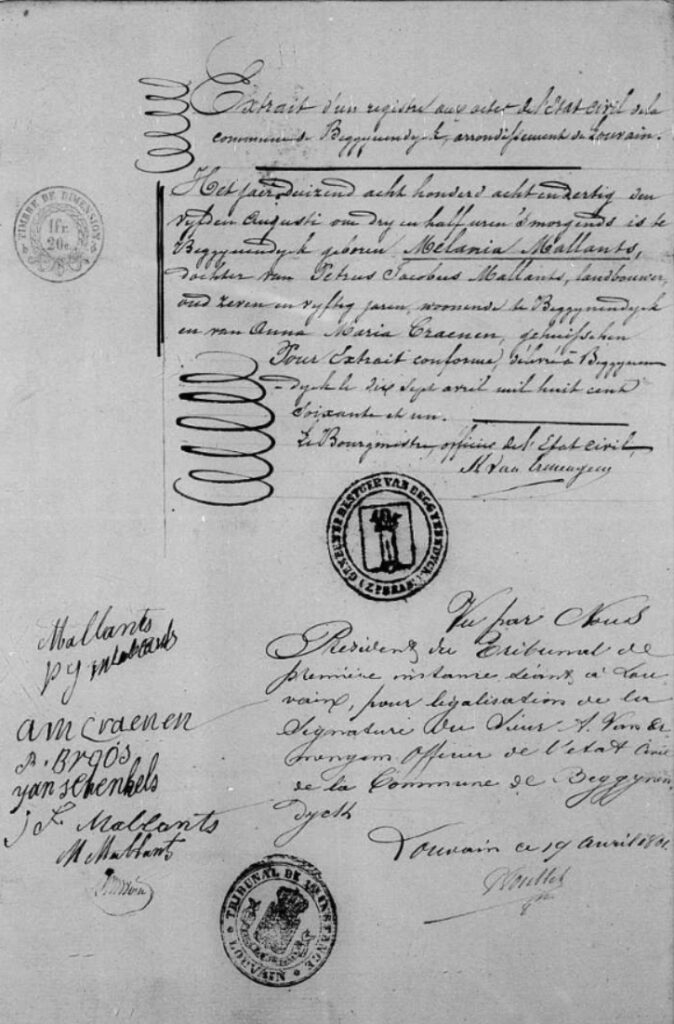 Extrait d'un registre aux actes de l'Etat civil de la
commune de Beggynendyk, arrondissement de Louvain.
TIMBRE DE DIMENSION
1fr.
20c.
Het jaer duizend acht honderd acht en dertig den
vyfden Augusti om dry en half uren 's morgends is te
Beggynendyck geboren Melania Mallants,
dochter van Petrus Jacobus Mallants, landbouwer,
oud zeven en vyftig jaren, woonende te Beggynendyck
en van Anna Maria Craenen, gehuisschen
Pour Extrait conforme, délivré à Beggynen
-dyck le dix sept avril mil huit cent
soixante et un.
Le Bourgmestre, officier de l'Etat civil,
GEMEENTE BESTUER VAN BEGGYNENDYCK
Z. BRAB.
Vu par Nous
Président du Tribunal de
première instance séant à Lou
vain, pour légalisation de la
signature du Sieur A. Van
officier de l'état civil
de la Commune de Beggynen
dyck
Louvain ce 19 avril 1861
Mallants
p j
a m craenen
Broos
J F Mallants
M Mallants
TRIBUNAL DE 1RE INSTANCE
LOUVAIN